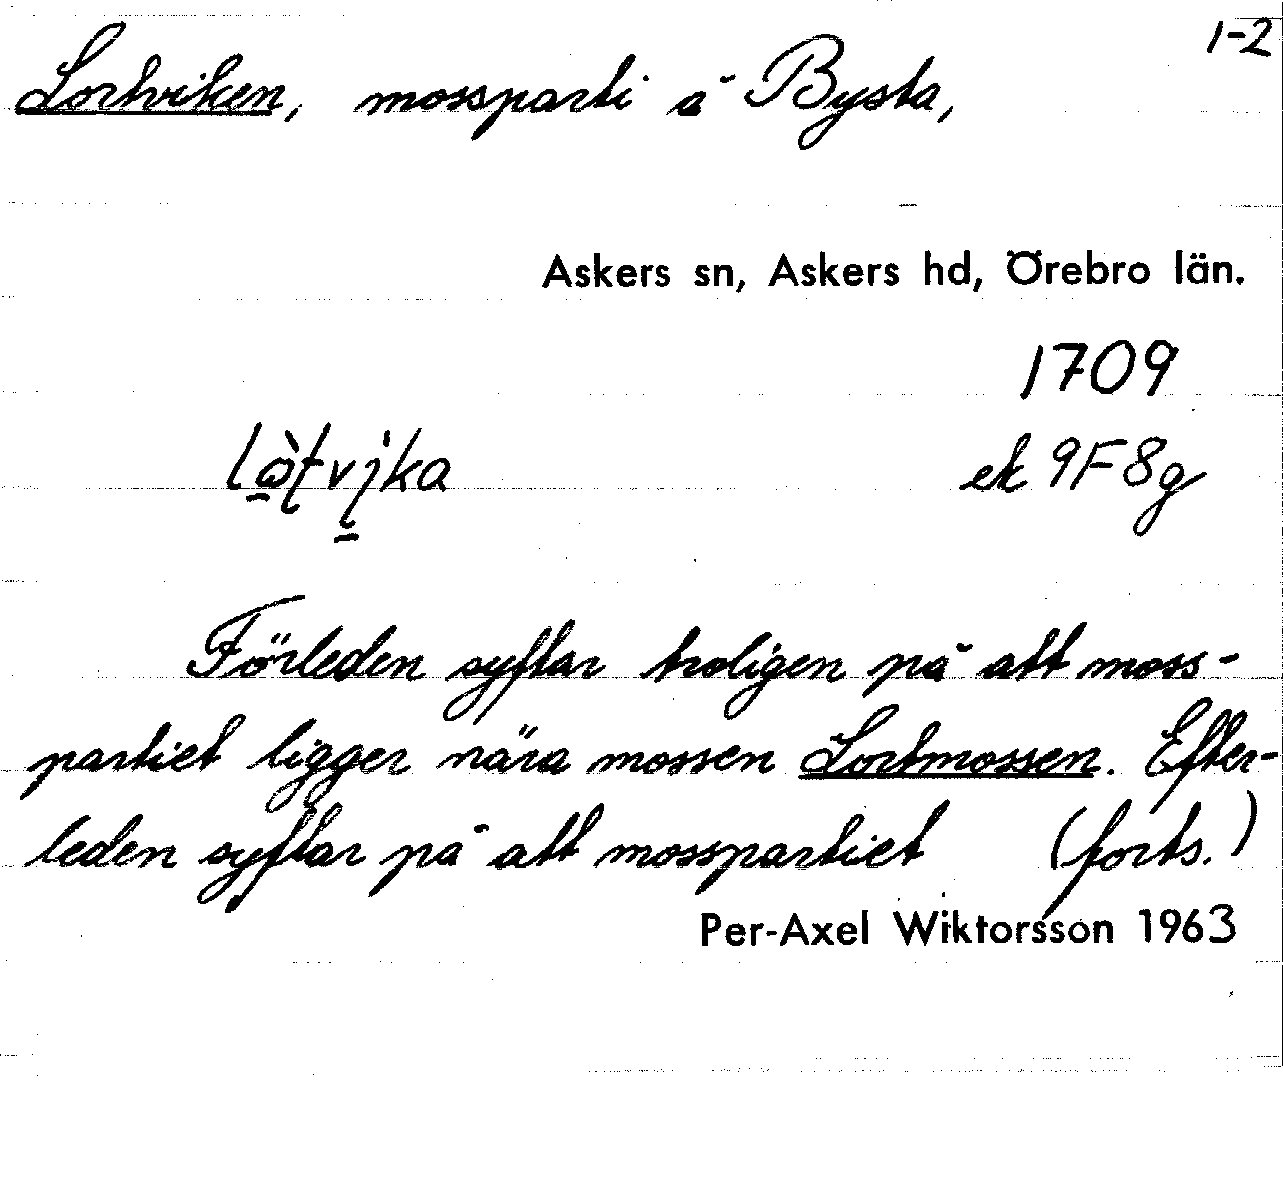 1-2
Lortviken, mossparti å Bysta,
Askers sn, Askers hd, Örebro län.
1709
ek 9F8g
Förleden syftar troligen på att moss-
partiet ligger nära mossen Lortmossen. Efter-
leden syftar på att mosspartiet (forts.)
Per-Axel Wiktorsson 1963